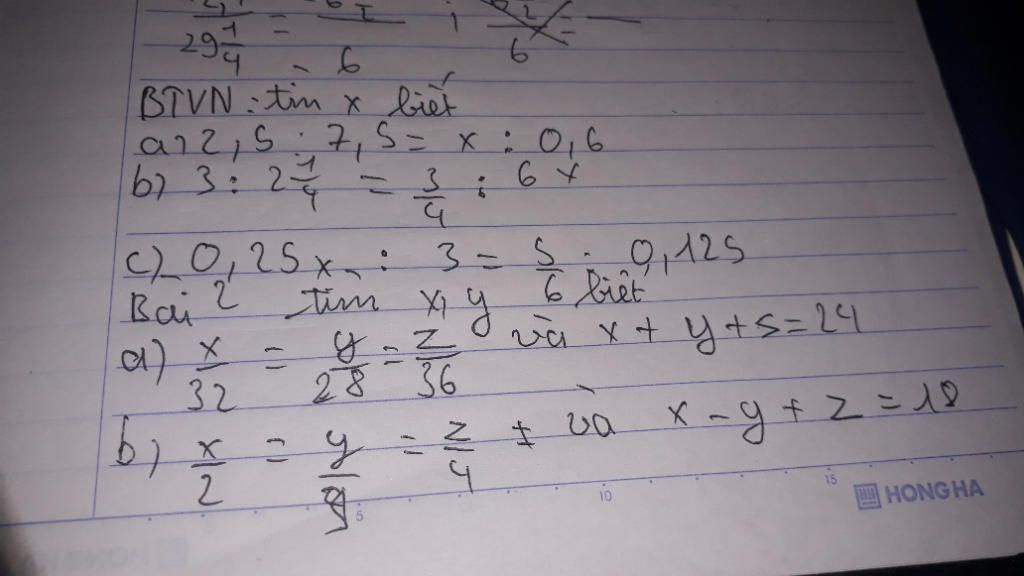 29 1/4 = 6
6
BTVN : tìm x biết
a) 2,5 : 7,5 = x : 0,6
b) 3 : 2 1/4 = 3/4 : 6x
c) 0,25x : 3 = 5/6 : 0,125
Bài 2 tìm x, y biết
a) x/32 = y/28 = z/36 và x + y + s = 24
b) x/2 = y/9 = z/4 và x - y + z = 18
5 10 15 HH HONG HA